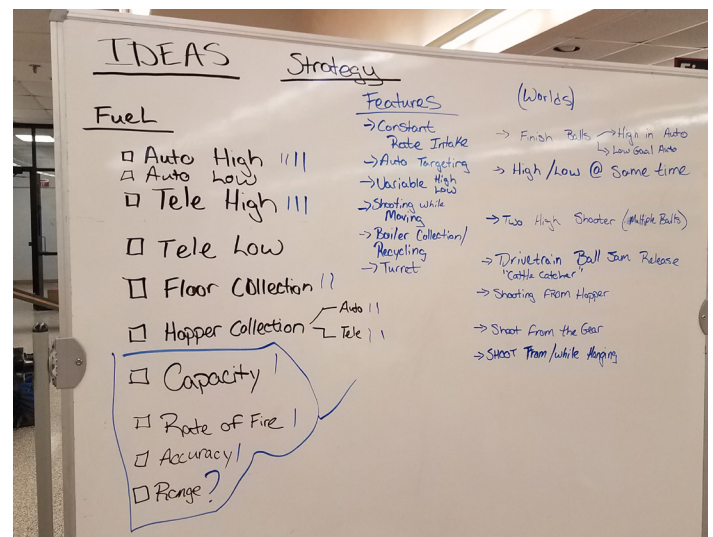 IDEAS
Strategy
Fuel
Auto High ||||
Auto Low
Tele High |||
Tele Low
Floor Collection ||
Hopper Collection
Auto ||
Tele ||
Capacity |
Rate of Fire |
Accuracy |
Range ?
Features
→ Constant
Rate Intake
→ Auto Targeting
→ Variable High
Low
→ Shooting while
Moving
→ Boiler Collection/
Recycling
→ Turret
(Worlds)
→ Finish Balls → High in Auto
↳ Low Goal Auto
→ High/Low @ Same time
→ Two High Shooter (Multiple Balls)
→ Drivetrain Ball Jam Release
"Cattle Catcher"
→ Shooting From Hopper
→ Shoot from the Gear
→ SHOOT From/while Hanging